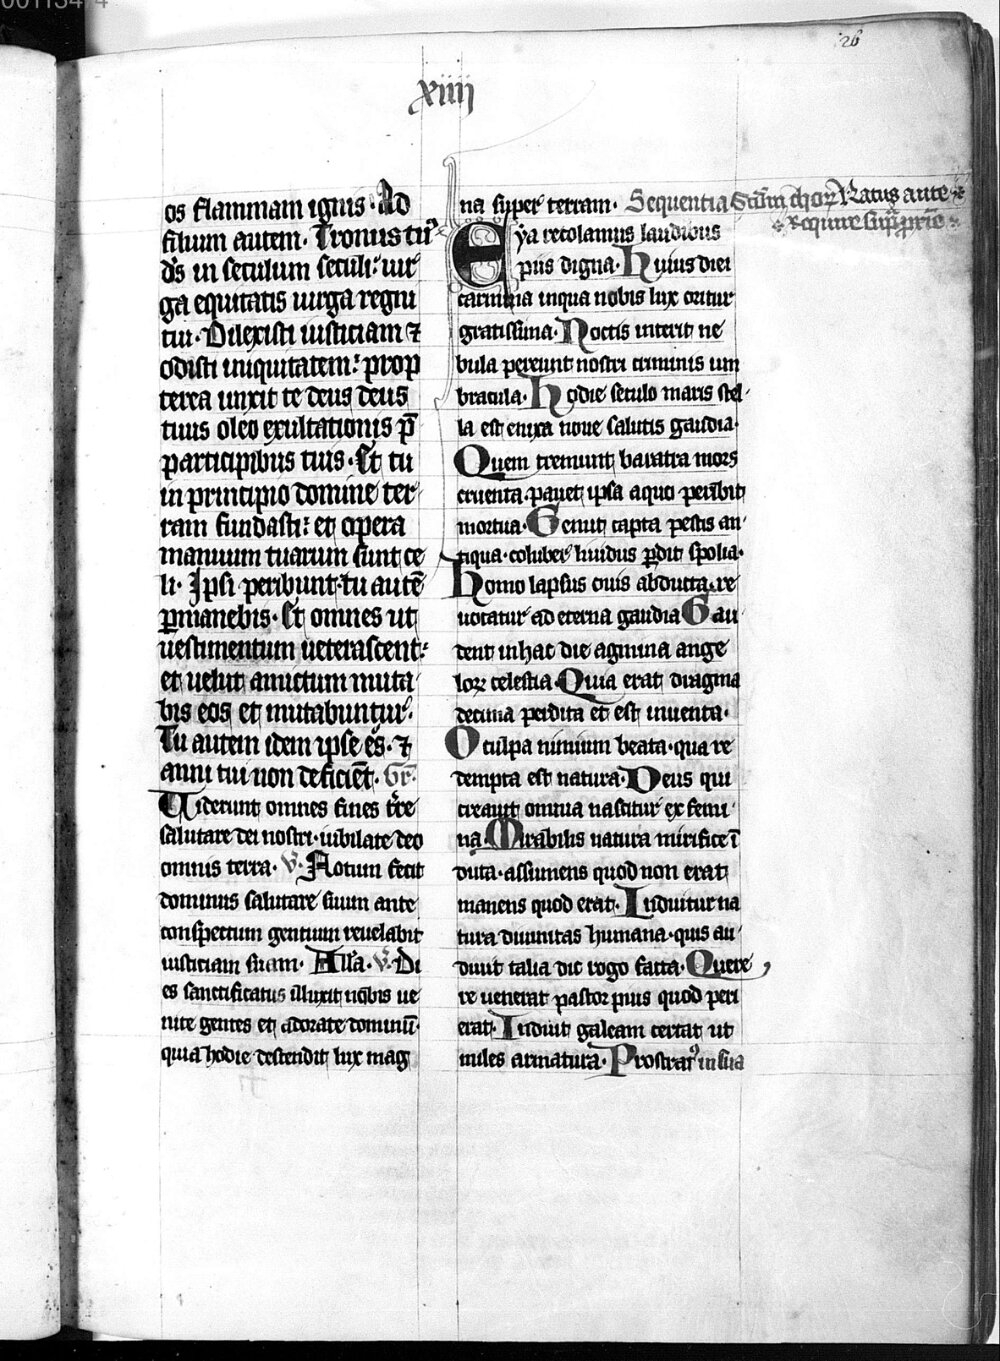 26
xiiij
os flammam ignis. Ad
filium autem. Tronus tuꝰ
ds in seculum seculi: uir
ga equitatis uirga regni
tui. Dilexisti iusticiam ⁊
odisti iniquitatem: prop
terea unxit te deus deus
tuus oleo exultationis p̄
participibus tuis. Et tu
in principio domine ter
ram fundasti: et opera
manuum tuarum sunt ce
li. Ipsi peribunt. tu autē
ꝑmanebis. Et omnes ut
uestimentum ueterascent:
et uelut amictum muta
bis eos et mutabuntur.
Tu autem idem ipse es. ⁊
anni tui non deficiēt. Gr.
Viderunt omnes fines tr̄e
salutare dei nostri. iubilate deo
omnis terra. V. Notum fecit
dominus salutare suum ante
conspectum gentium reuelabit
iusticiam suam. All̄a. V. Di
es sanctificatus illuxit nobis ue
nite gentes et adorate dominū.
quia hodie descendit lux mag
na super terram. Sequentia Natus ante
require
Eya recolamus laudibus
piis digna. Huius diei
carmina inqua nobis lux oritur
gratissima. Noctis interit ne
bula pereunt nostri criminis um
bracula. Hodie seculo maris stel
la est enixa noue salutis gaudia.
Quem tremunt baratra mors
cruenta pauet ipsa aquo peribit
mortua. Gemit capta pestis an
tiqua. coluber liuidus ꝑdit spolia.
Homo lapsus ouis abducta re
uocatur ad eterna gaudia Gau
dent in hac die agmina ange
loꝝ celestia. Quia erat dragma
decima perdita et est inuenta.
O culpa nimium beata. qua re
dempta est natura. Deus qui
creauit omnia nascitur ex femi
na. Mirabilis natura mirifice ī
duta. assumens quod non erat
manens quod erat. Induitur na
tura diuinitas humana. quis au
diuit talia dic rogo facta. Quere
re uenerat pastor pius quod peri
erat. Induit galeam certat ut
miles armatura. Prostratꝰ in sua